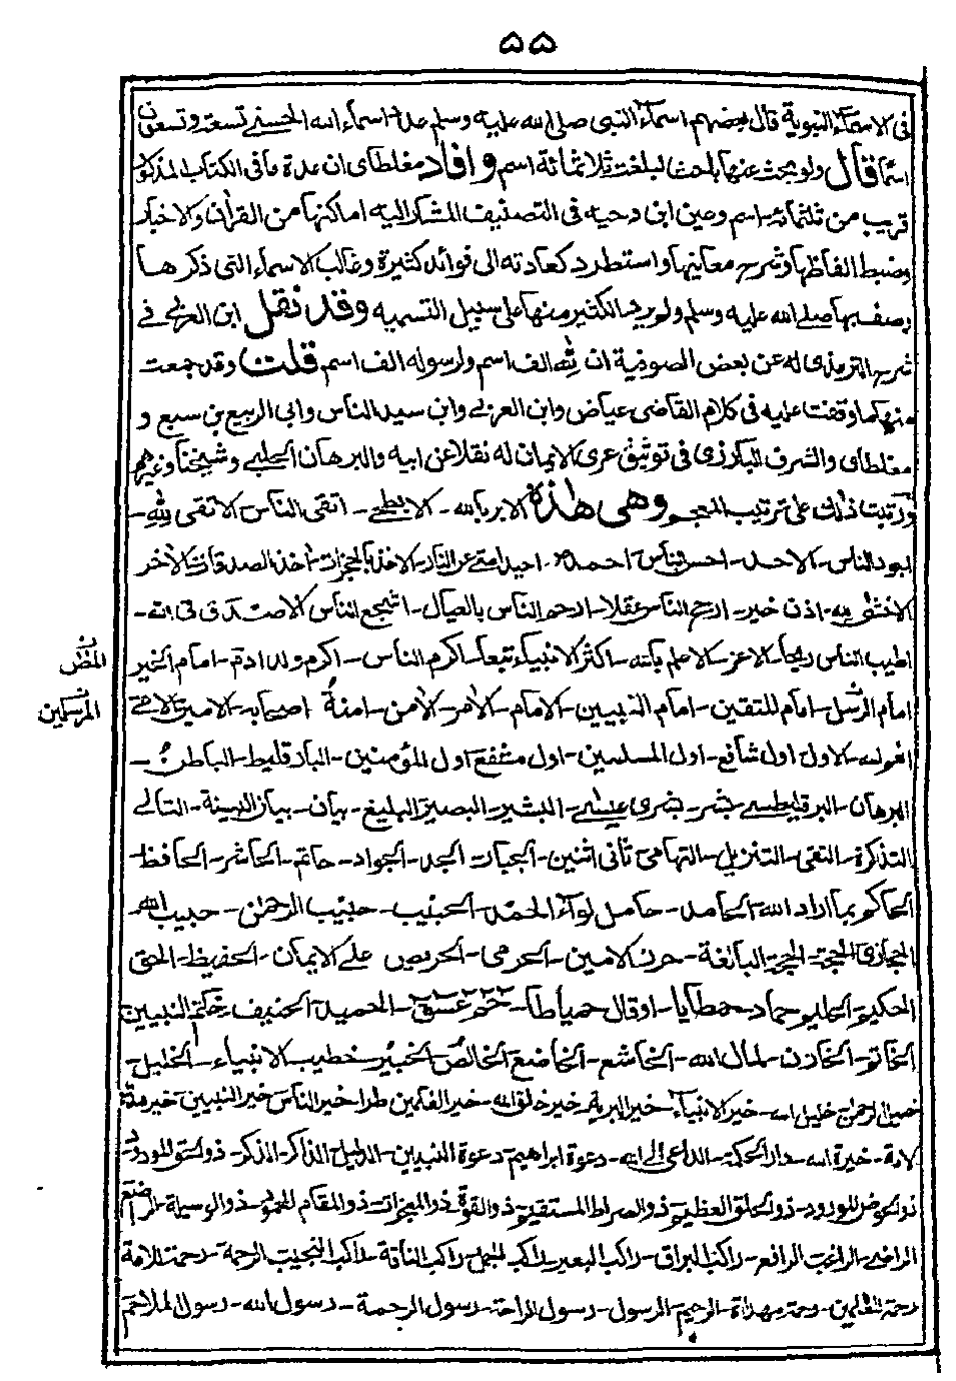 ۵۵
فی الاسماء النبویة قال بعضهم اسماء النبی صلی الله علیه وسلم عدد اسماء الله الحسنے تسعة وتسعون
اسمًا قال ولو بحث عنها باحث لبلغت ثلاثمائة اسم وافاد مغلطای ان عدة مافی الکتاب المذکور
قریب من ثلثمائة اسم وعین ابن دحیه فی التصنیف المشار الیه اماکنها من القرآن والاخبار
وضبط الفاظها وشرح معانیها واستطرد کعادته الی فوائد کثیرة وغالب الاسماء التی ذکرها
وصف بها صلے الله علیه وسلم ولم یرد الکثیر منها علی سبیل التسمیه وقد نقل ابن العربے فے
شرح الترمذی له عن بعض الصوفیة ان لله الف اسم ولرسوله الف اسم قلت وقد جمعت
منها ما وقفت علیه فی کلام القاضی عیاض وابن العربے وابن سید الناس وابی الربیع بن سبع و
مغلطای والشرف البارزی فی توثیق عری الایمان له نقلا عن ابیه والبرهان الحلبے وشیخنا وغیرهم
ورتبت ذلك علی ترتیب المعجم وهی هذه الابر بالله - الابطحے - اتقی الناس الاتقی لله -
اجود الناس - الاحد - احسن الناس احمد - احید امتے عن النار - الاخذ بالحجزات - اخذ الصدقات - الآخر
الاخشی لله - اذن خیر - ارجح الناس عقلا - ارحم الناس بالعیال - اشجع الناس الاصدق فی الله -
اطیب الناس ریحا - الاعز - الاعلم بالله - اکثر الانبیاء تبعا - اکرم الناس - اکرم ولد ادم - امام الخیر
المض
امام الرسل - امام المتقین - امام النبیین - الامام - الآمر - الآمن - امنة اصحابه - الامین - الامی
المرسلین
انعم الله - الاول - اول شافع - اول المسلمین - اول مشفع اول المؤمنین - البارقلیط - الباطن -
البرهان - البرقلیطس - بشر - بشری عیسے - البشیر - البصیر البلیغ - بیان - بیان البینة - التالے
التذکرة - التقی - التنزیل - التهامی ثانی اثنین - الجبار - الجد - الجواد - حاتم - الحاشر - الحافظ
الحاکم بما اراد الله - الحامد - حامل لواء الحمد - الحبیب - حبیب الرحمن - حبیب الله
الحجازی الحجة - الحجة البالغة - حرز الامین - الحرمی - الحریص علے الایمان - الحفیظ - الحق
الحکیم الحلیم - حماد - حمطایا - او قال حمیاطا - حمعسق - الحمید - الحنیف - خاتم النبیین
الخاتم - الخازن - لمال الله - الخاشع - الخاضع الخالص - الخبیر - خطیب الانبیاء - الخلیل -
خلیل الرحمن - خلیل الله - خیر الانبیاء - خیر البریة - خیر خلق الله - خیر العلمین طرا - خیر الناس خیر النبیین - خیر هذه
الامة - خیرة الله - دار الحکمة - الداعی الی الله - دعوة ابراهیم - دعوة النبیین - الدلیل - الذاکر - المذکر - ذو الحق المورود
ذو الحوض المورود - ذو الخلق العظیم - ذو الصراط المستقیم - ذو القوة ذو المعجزات - ذو المقام المحمود - ذو الوسیلة - الراضع
الراضے - الراغب الرافع - راکب البراق - راکب البعیر - راکب الجمل - راکب الناقة - راکب النجیب - الرحمة - رحمة للامة
رحمة للعلمین - رحمة مهداة - الرحیم - الرسول - رسول الراحة - رسول الرحمة - رسول الله - رسول الملاحم